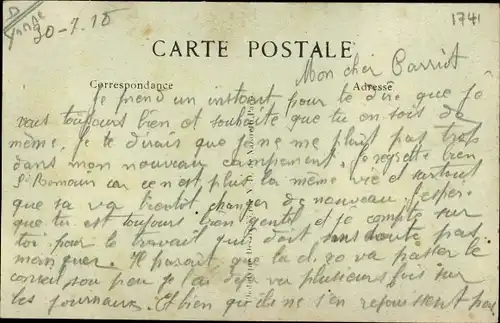 Yonne
20-7-15
1741
CARTE POSTALE
Correspondance
Adresse
Mon cher Parriot
Je prend un instant pour te dire que je
vais toujours bien et souhaite que tu en sois de
même. Je te dirais que je ne me plait pas trop
dans mon nouveau campement. Je regrette bien
St Romain car ce n'est plus la même vie et surtout
que sa va bientôt changer de nouveau. J'esper
que tu est toujours bien gentil et je compte sur
toi pour le travail qui doit sans doute pas
manquer. Il parait que la cl. va passer le
conseil sou peu je l'ai déjà vu plusieurs fois sur
les journaux. Eh bien qu'ils ne s'en rejouissent pas